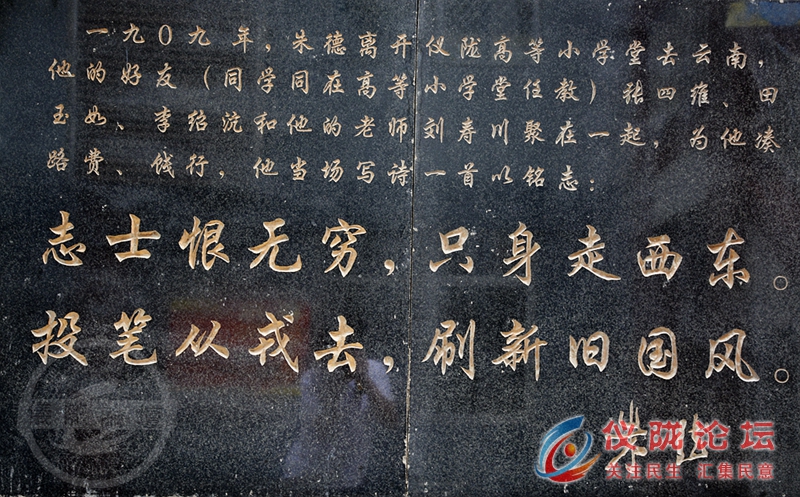 一九〇九年，朱德离开仪陇高等小学堂去云南，
他的好友（同学同在高等小学堂任教）张四维、田
玉如、李绍沆和他的老师刘寿川聚在一起，为他凑
路费、饯行，他当场写诗一首以铭志：
志士恨无穷，只身走西东。
投笔从戎去，刷新旧国风。
朱
仪陇论坛
关注民生 汇集民意